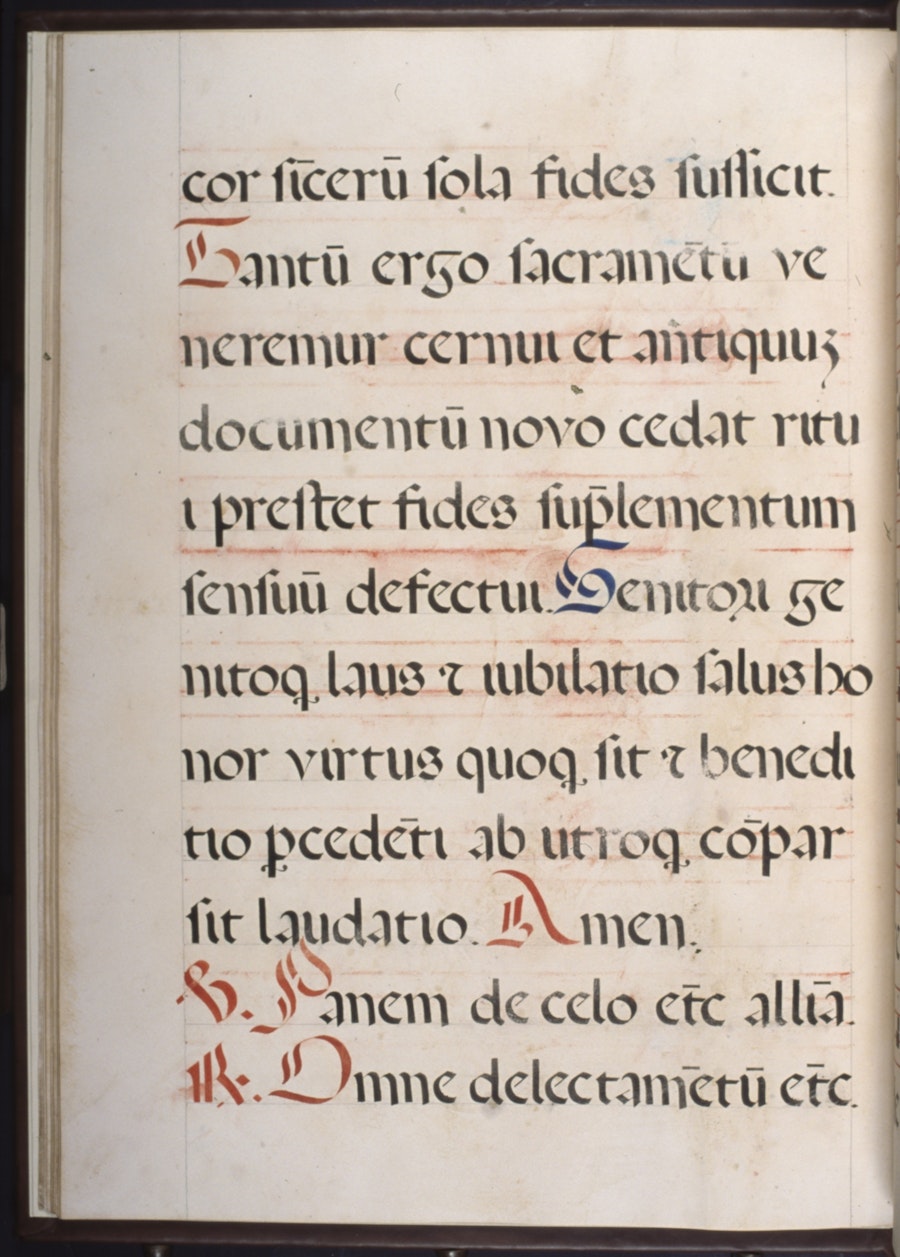 cor ſīcerū ſola fides ſufficit.
Tantū ergo ſacramētū ve
neremur cernui et añtiquuꝫ
documentū novo cedat ritu
i preſtet fides ſup̄lementum
ſenſuū defectui. Genitoꝛi ge
nitoq̨ laus ⁊ iubilatio ſalus ho
nor virtus quoq̨ ſit ⁊ benedi
tio ꝓcedēti ab utroq̨ cōpar
ſit laudatio. Amen.
℣. Panem de celo et̄c allīa.
℟. Omne delectam̄etū et̄c.